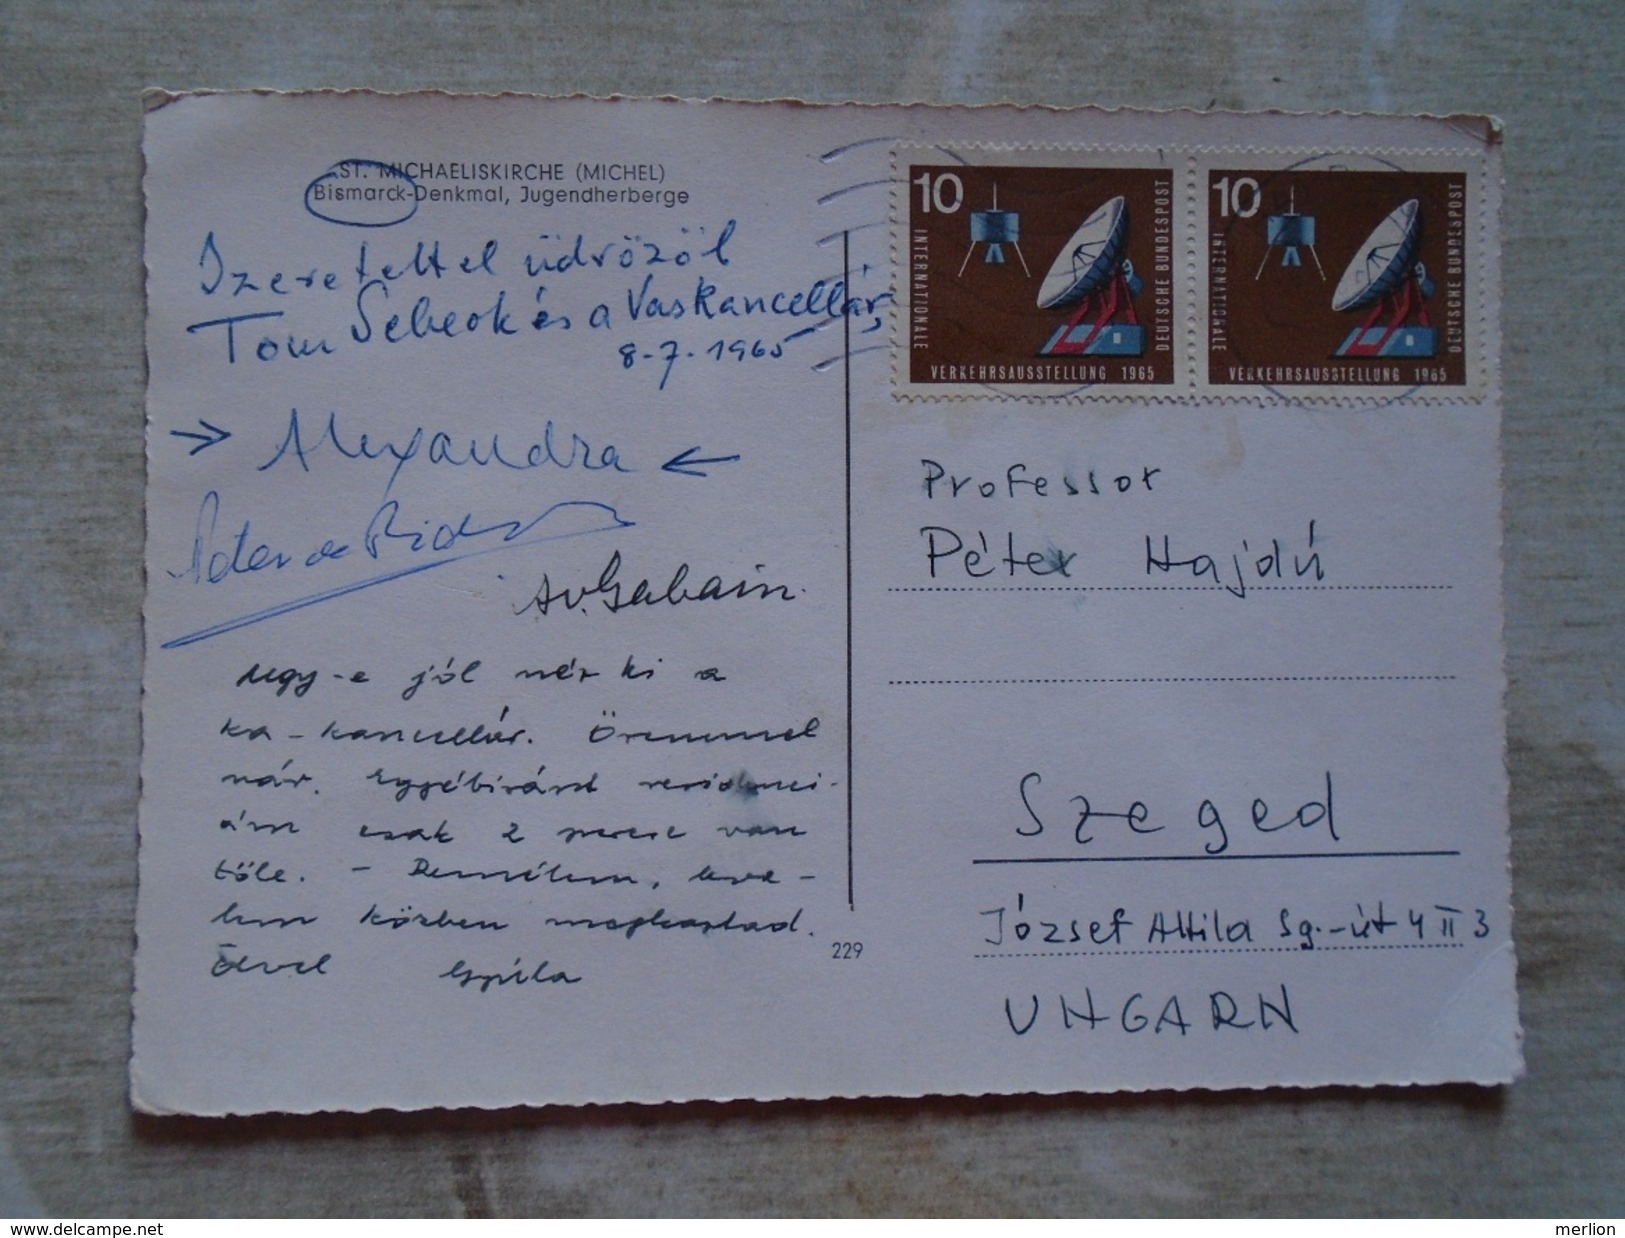 ST. MICHAELISKIRCHE (MICHEL)
Bismarck-Denkmal, Jugendherberge
Szeretettel üdvözöl
Tom Sebeok és a Vaskancellár
8-7-1965
→ Alexandra ←
A v. Gabain.
Ugy-e jól néz ki a
ka-kancellár. Örömmel
vár. Egyébiránt
csak 2 van
tőle. - Remélem,
közben megkaptad.
Ölel Gyula
229
10
INTERNATIONALE
VERKEHRSAUSSTELLUNG 1965
DEUTSCHE BUNDESPOST
10
INTERNATIONALE
VERKEHRSAUSSTELLUNG 1965
DEUTSCHE BUNDESPOST
Professor
Péter Hajdú
Szeged
József Attila Sg.-út 4 II 3
UNGARN
www.delcampe.net
merlion